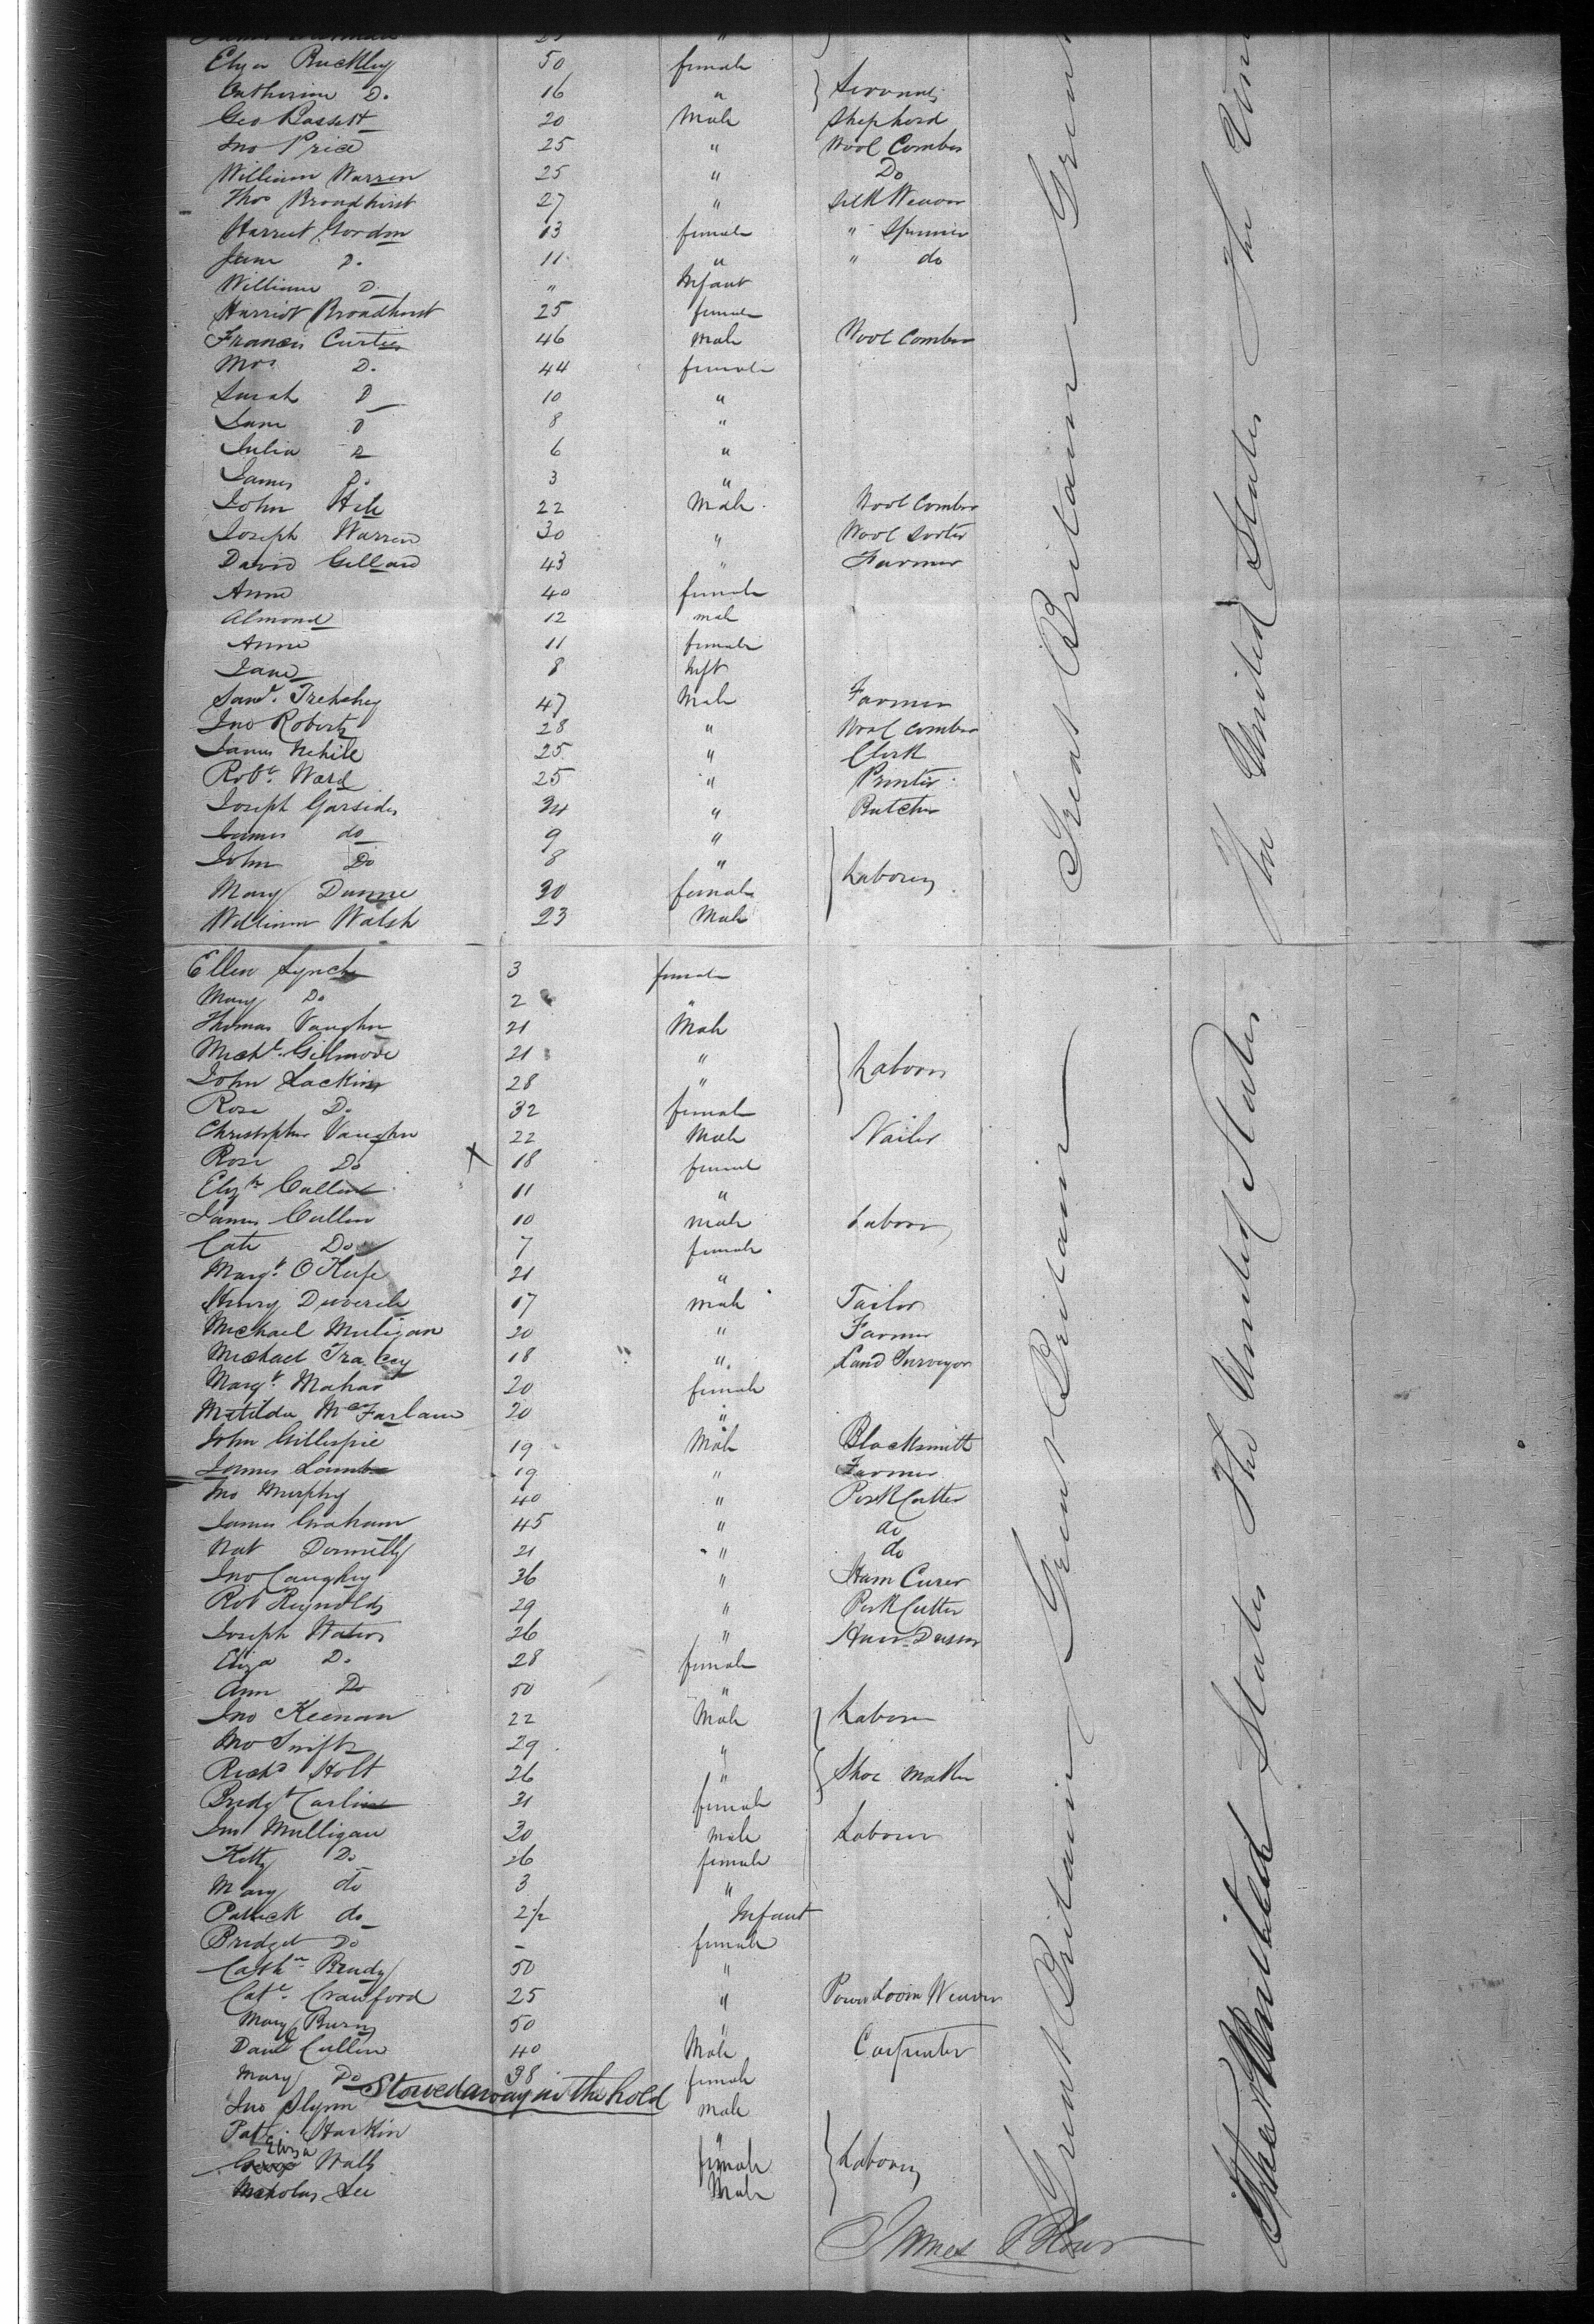 Elyza Buckley 50 female
Catherine D. 16 " Servants
Geo Bassett 20 Male Shepherd
Jno Price 25 " Wool Comber
William Warren 25 " Do
Thos Broadhurst 27 " Silk Weaver
Harriet Gordon 13 female " Spinner
Jane D. 11 " " do
William D. " Infant
Harriot Broadhurst 25 female
Francis Curtis 46 Male Wool Comber
Mrs D. 44 female
Sarah D 10 "
Jane D 8 "
Julia D 6 "
James Do 3 "
John Hile 22 Male Wool Comber
Joseph Warren 30 " Wool Sorter
David Gillard 43 " Farmer
Anne 40 female
Almond 12 male
Anne 11 female
Jane 8 Inft
Saml. 47 Male Farmer
Jno Roberts 28 " Wool Comber
James 25 " Clerk
Robt. Ward 25 " Printer
Joseph Garsides 34 " Butcher
James do 9 "
John Do 8 "
Mary Dunne 30 female Laborers
William Walsh 23 Male
Ellen Lynch 3 female
Mary Do 2 "
Thomas Vaughn 21 Male
Michl. Gilmore 21 " Laborers
John Lackin 28 "
Rose Do 32 female
Christopher Vaughn 22 Male Nailer
Rose Do X 18 female
Elizth Cullen 11 "
James Cullen 10 male Laborer
Cate Do 7 female
Margt. O Keefe 21 "
Henry 17 male Tailor
Michael Muligan 20 " Farmer
Michael Tracey 18 " Land Surveyor
Margt. Mahar 20 female
Matilda McFarlane 20 "
John Gillespie 19 Male Blacksmith
James Lamb 19 " Farmer
Jno Murphy 40 " Pork Cutter
James Graham 45 " do
Nat Donnelly 21 " do
Jno Caughey 36 " Ham Curer
Rob Reynolds 29 " Pork Cutter
Joseph Water 26 " Hair Dresser
Eliza D. 28 female
Ann Do 50 "
Jno Keenan 22 Male Laborer
Jno Swift 29 "
Richd Holt 26 " Shoe Maker
Bridgt Carlin 31 female
Jno Mulligan 30 male Laborer
Kitty Do 26 female
Mary do 3 "
Patrick do 2½ Infant
Bridget Do - female
Cathn Brady 50 "
Cate. Crawford 25 " Power Loom Weaver
Mary Burns 50 "
Danl Cullen 40 Male Carpenter
Mary Do 38 female
Stowed away in the hold
Jno Flynn male
Patk. Harkin "
Eliza Walls female Laborers
Nicholas Lee Male
Great Britain Great Britain
The United States The United States
James